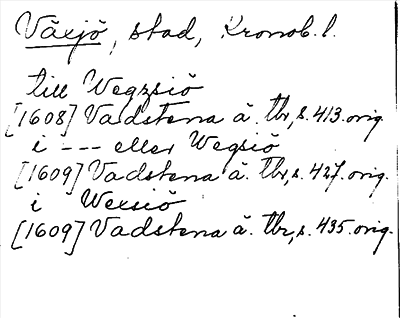 Växjö, stad, Kronob. l.
till Wegzsiö
[1608] Vadstena ä. tbr, s. 413. orig.
i --- eller Wegsiö
[1609] Vadstena ä. tbr, s. 427. orig.
i Wexsiö
[1609] Vadstena ä. tbr, s. 435. orig.